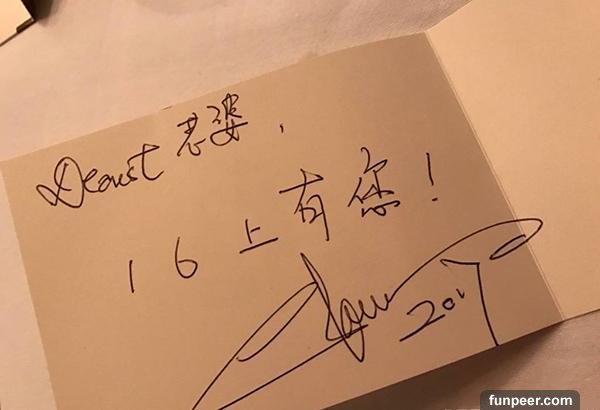 Dearest 老婆，
16 上有您！
2017
funpeer.com